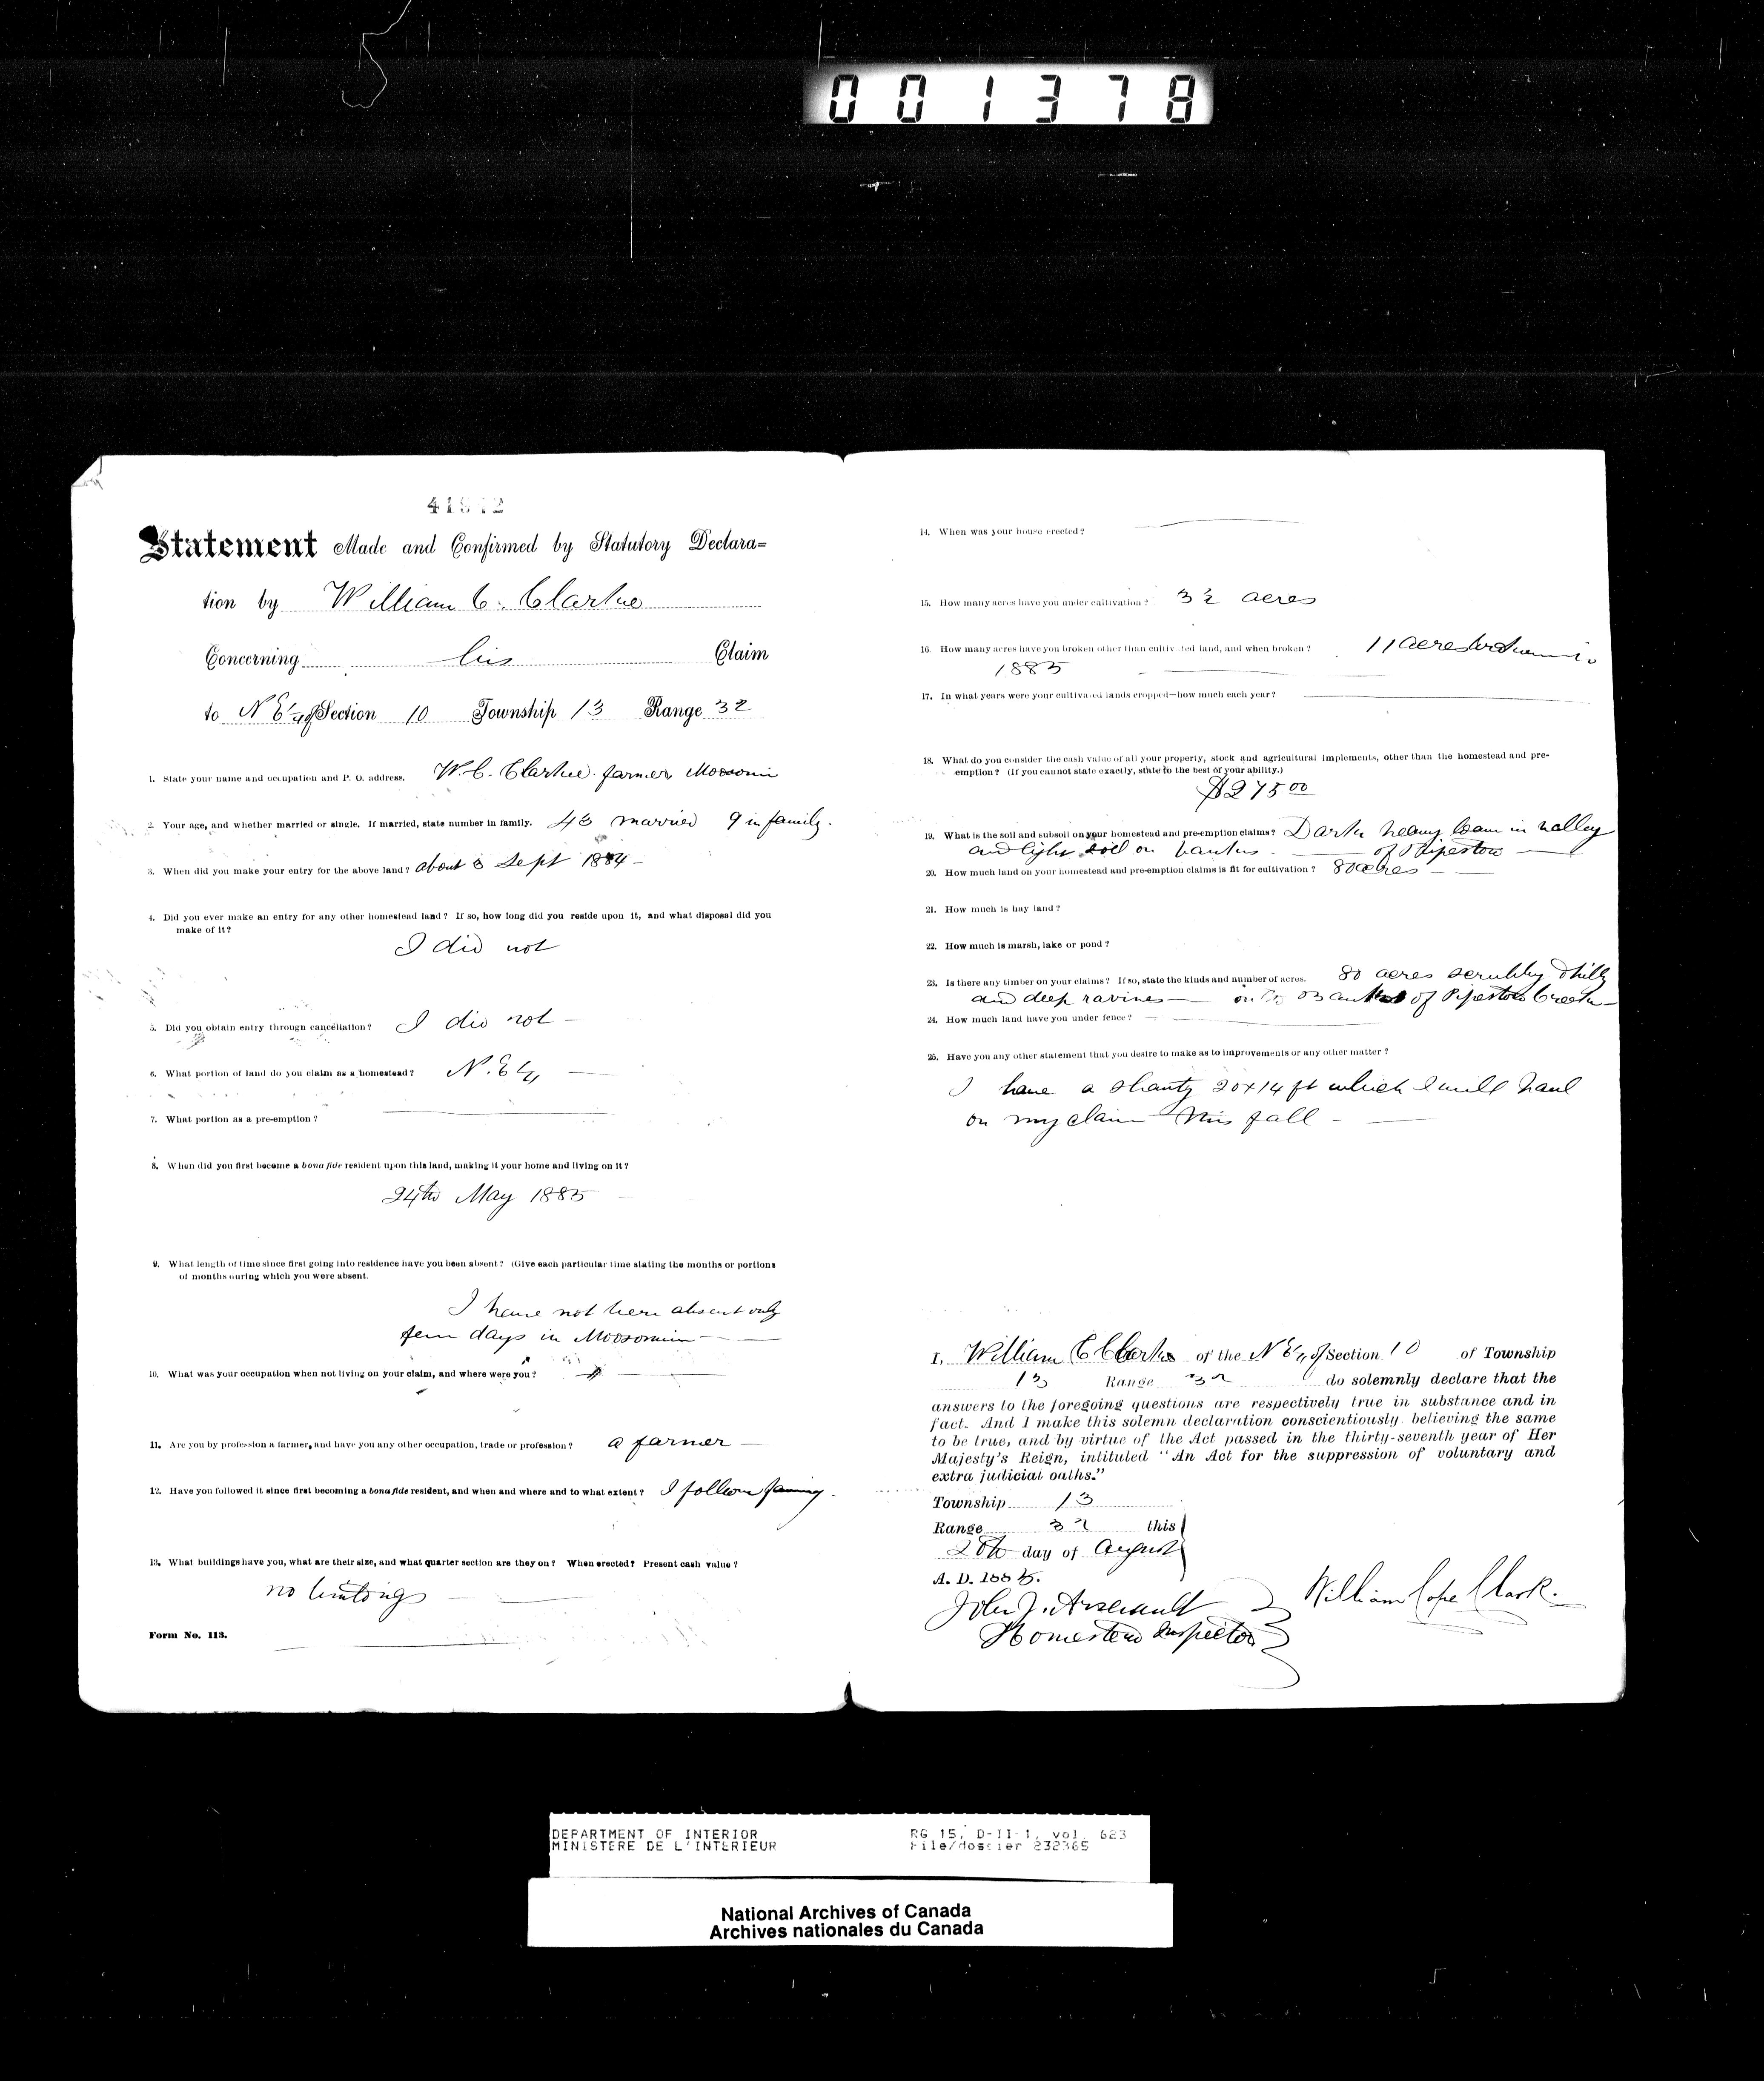 001378
Statement Made and Confirmed by Statutory Declara=
tion by William C. Clarke
Concerning his Claim
to N E 1/4 of Section 10 Township 13 Range 32
1. State your name and occupation and P. O. address. W. C. Clarke farmer Moosomin
2. Your age, and whether married or single. If married, state number in family. 43 married 9 in family.
3. When did you make your entry for the above land? about 8 Sept 1884 –
4. Did you ever make an entry for any other homestead land? If so, how long did you reside upon it, and what disposal did you
make of it?
I did not
5. Did you obtain entry through cancellation? I did not –
6. What portion of land do you claim as a homestead? N. E 1/4 –
7. What portion as a pre-emption?
8. When did you first become a bona fide resident upon this land, making it your home and living on it?
24th May 1885
9. What length of time since first going into residence have you been absent? (Give each particular time stating the months or portions
of months during which you were absent.
I have not been absent only
few days in Moosomin
10. What was your occupation when not living on your claim, and where were you?
11. Are you by profession a farmer, and have you any other occupation, trade or profession? a farmer –
12. Have you followed it since first becoming a bona fide resident, and when and where and to what extent? I follow farming.
13. What buildings have you, what are their size, and what quarter section are they on? When erected? Present cash value?
no buildings
Form No. 113.
14. When was your house erected?
15. How many acres have you under cultivation? 3 1/2 acres
16. How many acres have you broken other than cultivated land, and when broken? 11 acres
1885
17. In what years were your cultivated lands cropped—how much each year?
18. What do you consider the cash value of all your property, stock and agricultural implements, other than the homestead and pre-
emption? (If you cannot state exactly, state to the best of your ability.)
$275 00
19. What is the soil and subsoil on your homestead and pre-emption claims? Dark heavy loam in valley
and light soil on banks of Pipestone
20. How much land on your homestead and pre-emption claims is fit for cultivation? 80 acres
21. How much is hay land?
22. How much is marsh, lake or pond?
23. Is there any timber on your claims? If so, state the kinds and number of acres. 80 acres scrubby & hilly
and deep ravines — on the Banks of Pipestone Creek
24. How much land have you under fence?
25. Have you any other statement that you desire to make as to improvements or any other matter?
I have a shanty 20x14 ft which I will haul
on my claim this fall –
I, William C Clarke of the N E 1/4 of Section 10 of Township
13 Range 32 do solemnly declare that the
answers to the foregoing questions are respectively true in substance and in
fact. And I make this solemn declaration conscientiously believing the same
to be true, and by virtue of the Act passed in the thirty-seventh year of Her
Majesty's Reign, intituled "An Act for the suppression of voluntary and
extra judicial oaths."
Township 13
Range 32 this
28th day of August
A. D. 1885.
John J. Arsenault
Homestead Inspector
William Cope Clark.
DEPARTMENT OF INTERIOR
MINISTERE DE L'INTERIEUR
RG 15, D-II-1, vol. 623
File/dossier 232365
National Archives of Canada
Archives nationales du Canada